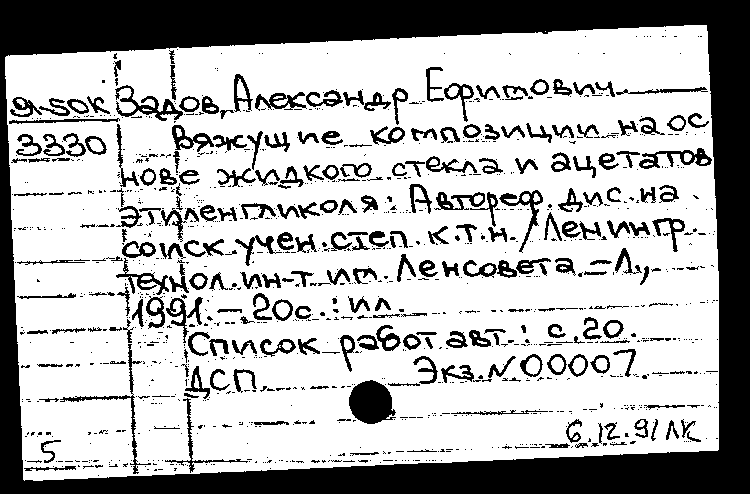 91-50К Задов, Александр Ефимович
3330 Вяжущие композиции на ос
нове жидкого стекла и ацетатов
этиленгликоля: Автореф. дис. на
соиск. учен. степ. к.т.н. / Ленингр.
технол. ин-т им. Ленсовета. – Л.,
1991. – 20с. : ил.
Список работ авт.: с. 20.
ДСП. Экз. N 00007.
5 6.12.91 ЛК